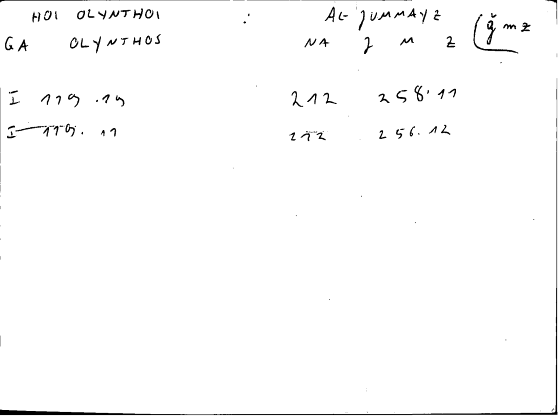 HOI OLYNTHOI : AL-JUMMAYZ
GA OLYNTHOS NA J M Z (ǧmz
I 119.19 212 258.11
I 119.11 212 256.12